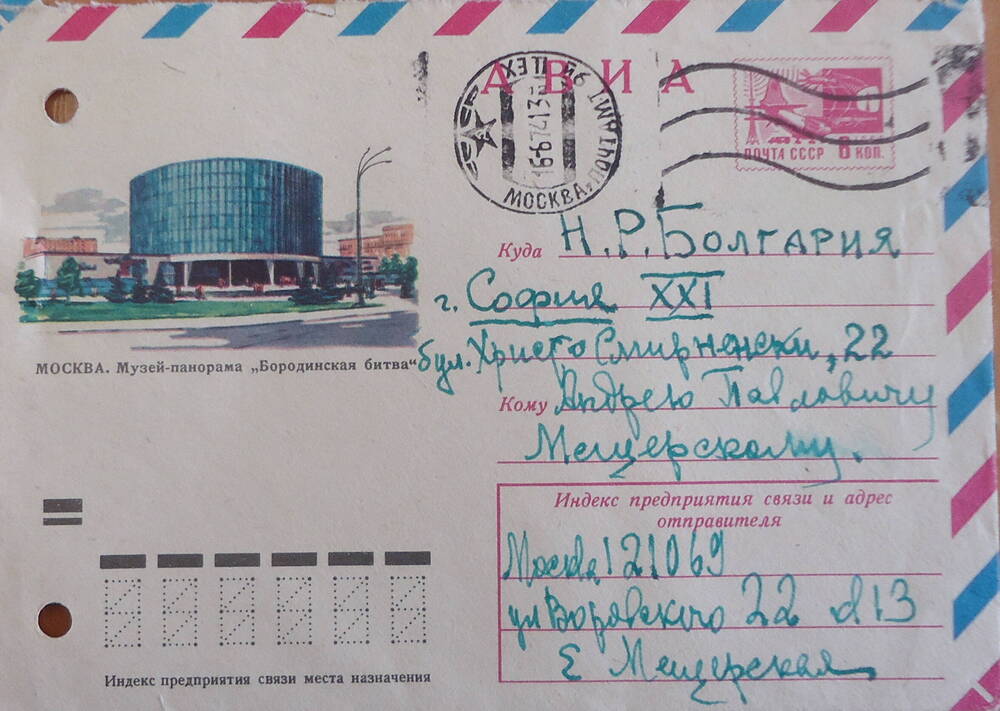 АВИА
МОСКВА. ПОЧТАМТ
ПЕХ
16-6-74 13
ПОЧТА СССР 6 КОП.
МОСКВА. Музей-панорама „Бородинская битва“
Куда Н.Р. БОЛГАРИЯ
г. София XXI
бул. Христо Смирненски, 22
Кому Андрею Павловичу
Мещерскому.
Индекс предприятия связи и адрес
отправителя
Москва 121069
ул Воровского 22
Е Мещерская
Индекс предприятия связи места назначения